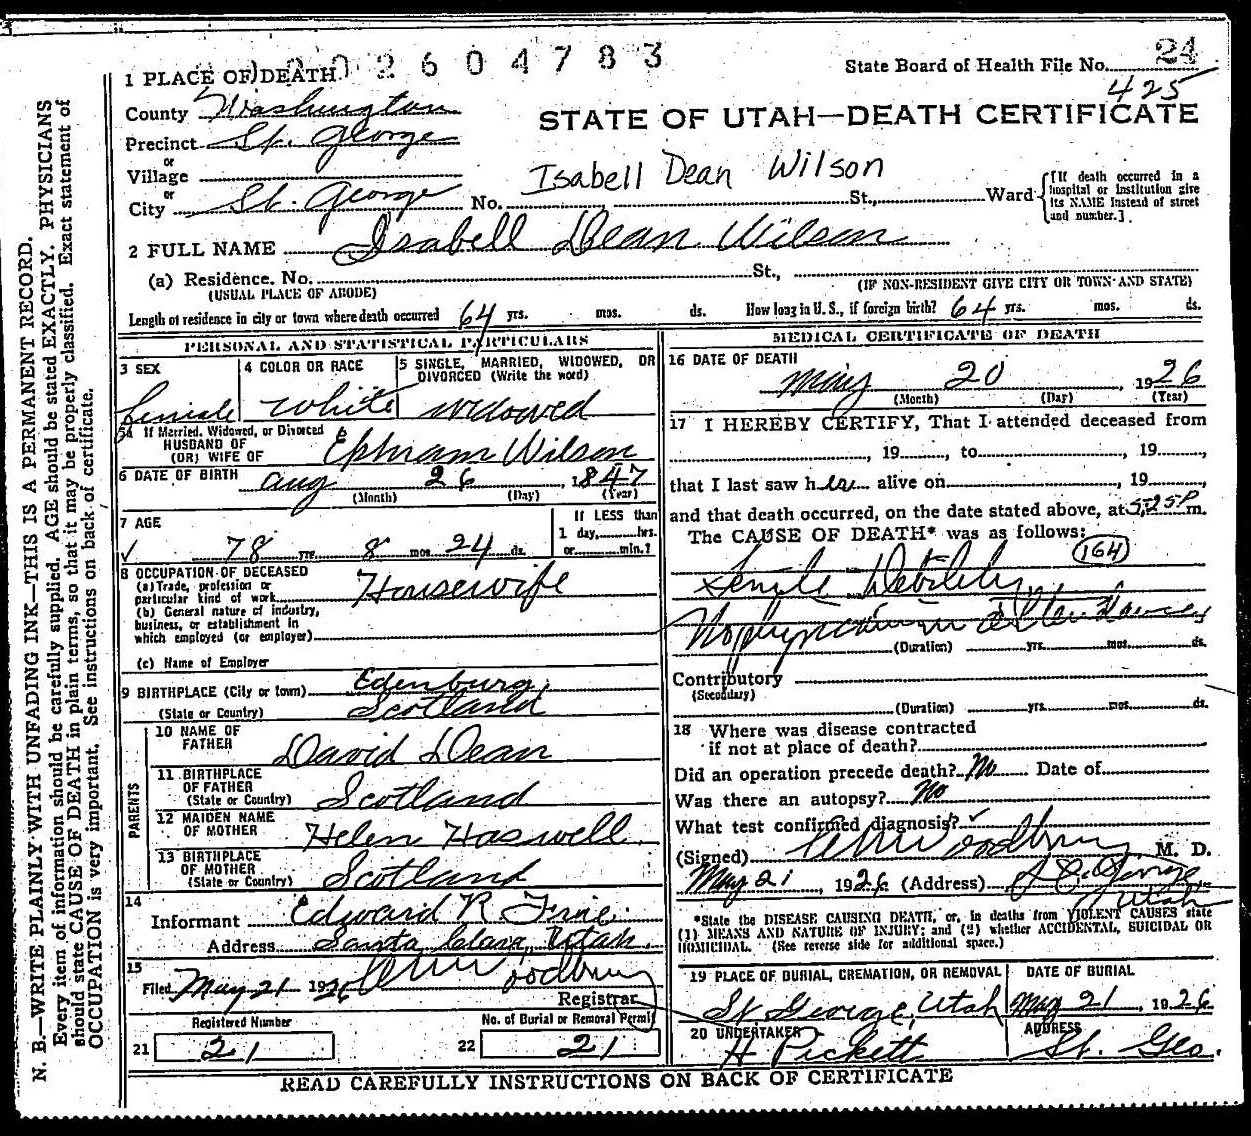 2604783
24
State Board of Health File No.
425
1 PLACE OF DEATH
County Washington
STATE OF UTAH—DEATH CERTIFICATE
Precinct St. George
or
Village
Isabell Dean Wilson
or
City St. George No. St., Ward
[If death occurred in a hospital or institution give its NAME instead of street and number.]
2 FULL NAME Isabell Dean Wilson
(a) Residence. No. St.,
(USUAL PLACE OF ABODE) (IF NON-RESIDENT GIVE CITY OR TOWN AND STATE)
Length of residence in city or town where death occurred 64 yrs. mos. ds. How long in U. S., if foreign birth? 64 yrs. mos. ds.
PERSONAL AND STATISTICAL PARTICULARS
3 SEX
female
4 COLOR OR RACE
White
5 SINGLE, MARRIED, WIDOWED, OR DIVORCED (Write the word)
widowed
5a If Married, Widowed, or Divorced
HUSBAND OF
(OR) WIFE OF Ephram Wilson
6 DATE OF BIRTH Aug 26, 1847
(Month) (Day) (Year)
7 AGE
78 yrs. 8 mos. 24 ds.
If LESS than
1 day, hrs.
or min.?
8 OCCUPATION OF DECEASED
(a) Trade, profession or
particular kind of work Housewife
(b) General nature of industry,
business, or establishment in
which employed (or employer)
(c) Name of Employer
9 BIRTHPLACE (City or town) Edenburg,
(State or Country) Scotland
PARENTS
10 NAME OF FATHER David Dean
11 BIRTHPLACE OF FATHER
(State or Country) Scotland
12 MAIDEN NAME OF MOTHER Helen Haswell
13 BIRTHPLACE OF MOTHER
(State or Country) Scotland
14
Informant Edward R Frei
Address Santa Clara, Utah.
15
Filed May 21 1926 Woodbury
Registrar
Registered Number
21 21
No. of Burial or Removal Permit
22 21
MEDICAL CERTIFICATE OF DEATH
16 DATE OF DEATH
May 20, 1926
(Month) (Day) (Year)
17 I HEREBY CERTIFY, That I attended deceased from
, 19, to , 19,
that I last saw her alive on , 19,
and that death occurred, on the date stated above, at 5:25 P m.
The CAUSE OF DEATH* was as follows:
164
Senile Debility,
No physician in attendance
(Duration) yrs. mos. ds.
Contributory
(Secondary)
(Duration) yrs. mos. ds.
18 Where was disease contracted
if not at place of death?
Did an operation precede death? No Date of
Was there an autopsy? No
What test confirmed diagnosis?
(Signed) Woodbury, M. D.
May 21, 1926 (Address) St. George
Utah
*State the DISEASE CAUSING DEATH, or, in deaths from VIOLENT CAUSES state
(1) MEANS AND NATURE OF INJURY; and (2) whether ACCIDENTAL, SUICIDAL OR
HOMICIDAL. (See reverse side for additional space.)
19 PLACE OF BURIAL, CREMATION, OR REMOVAL
St George, Utah
DATE OF BURIAL
May 21, 1926
20 UNDERTAKER
H Pickett
ADDRESS
St. Geo.
READ CAREFULLY INSTRUCTIONS ON BACK OF CERTIFICATE
N. B.—WRITE PLAINLY WITH UNFADING INK—THIS IS A PERMANENT RECORD.
Every item of information should be carefully supplied. AGE should be stated EXACTLY. PHYSICIANS
should state CAUSE OF DEATH in plain terms, so that it may be properly classified. Exact statement of
OCCUPATION is very important. See instructions on back of certificate.